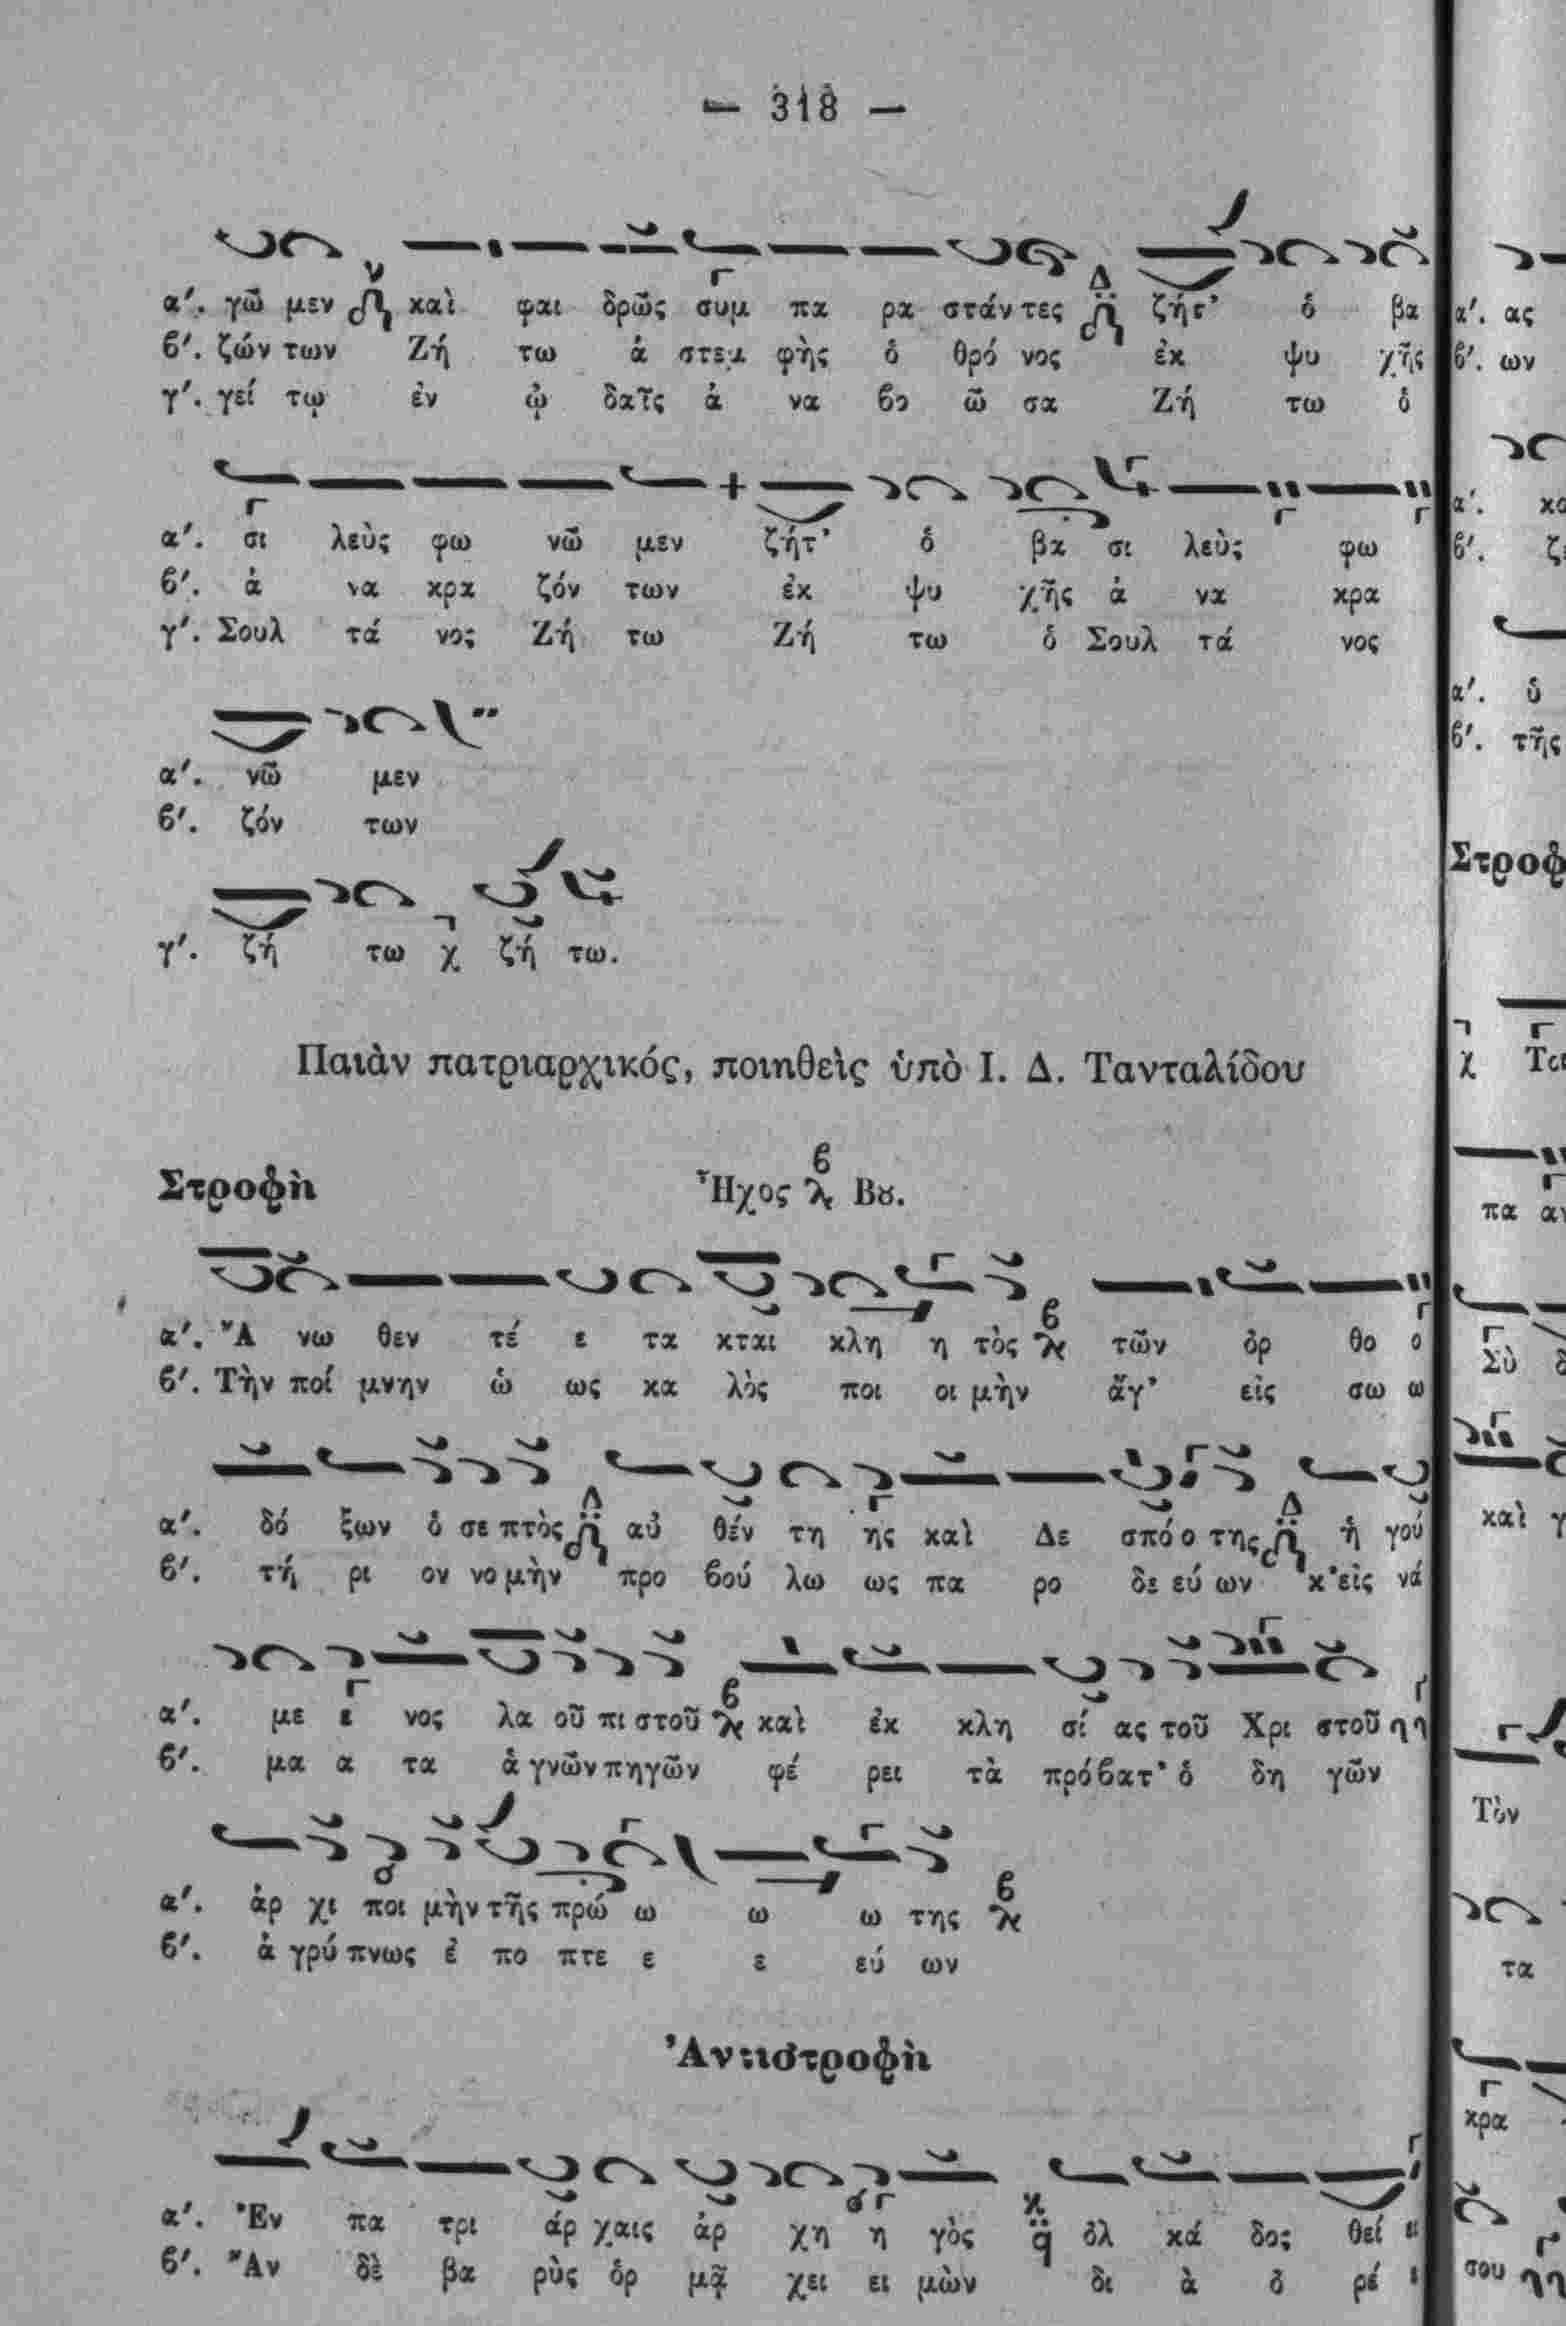 — 318 —
α΄. γῶ μεν καὶ φαι δρῶς συμ πα ρα στάν τες ζήτ' ὁ βα
β΄. ζών των Ζή τω ἀ στεμ φὴς ὁ θρό νος ἐκ ψυ χῆς
γ΄. γεί τῳ ἐν ᾠ δαῖς ἀ να βο ῶ σα Ζή τω ὁ
α΄. σι λεὺς φω νῶ μεν ζήτ' ὁ βα σι λεὺς φω
β΄. ἀ να κρα ζόν των ἐκ ψυ χῆς ἀ να κρα
γ΄. Σουλ τά νος Ζή τω Ζή τω ὁ Σουλ τά νος
α΄. νῶ μεν
β΄. ζόν των
γ΄. ζή τω ζή τω.
Παιὰν πατριαρχικός, ποιηθεὶς ὑπὸ Ι. Δ. Τανταλίδου
Στροφὴ Ἦχος Βȣ.
α΄. Ἄ νω θεν τέ ε τα κται κλη η τὸς τῶν ὀρ θο ο
β΄. Τὴν ποί μνην ὡ ως κα λὸς ποι οι μὴν ἄγ' εἰς σω ω
α΄. δό ξων ὁ σε πτὸς αὐ θέν τη ης καὶ Δε σπό ο της ἡ γού
β΄. τή ρι ον νο μὴν προ βού λω ως πα ρο δε εύ ων κ' εἰς νά
α΄. με ε νος λα οῦ πι στοῦ καὶ ἐκ κλη σί ας τοῦ Χρι στοῦ
β΄. μα α τα ἁ γνῶν πηγῶν φέ ρει τὰ πρόβατ' ὁ δη γῶν
α΄. ἀρ χι ποι μὴν τῆς πρώ ω ω ω της
β΄. ἀ γρύ πνως ἐ πο πτε ε ε εύ ων
Ἀντιστροφὴ
α΄. Ἐν πα τρι άρ χαις ἀρ χη η γὸς ὁλ κά δος θεί ει
β΄. Ἂν δὲ βα ρὺς ὁρ μᾷ χει ει μὼν δι ὰ ὁ ρέ
α΄. ας
β΄. ων
α΄.
β΄.
α΄. ὁ
β΄. τῆς
Στροφ
πα
Σὺ
καὶ
Τὸν
τα
κρα
σου